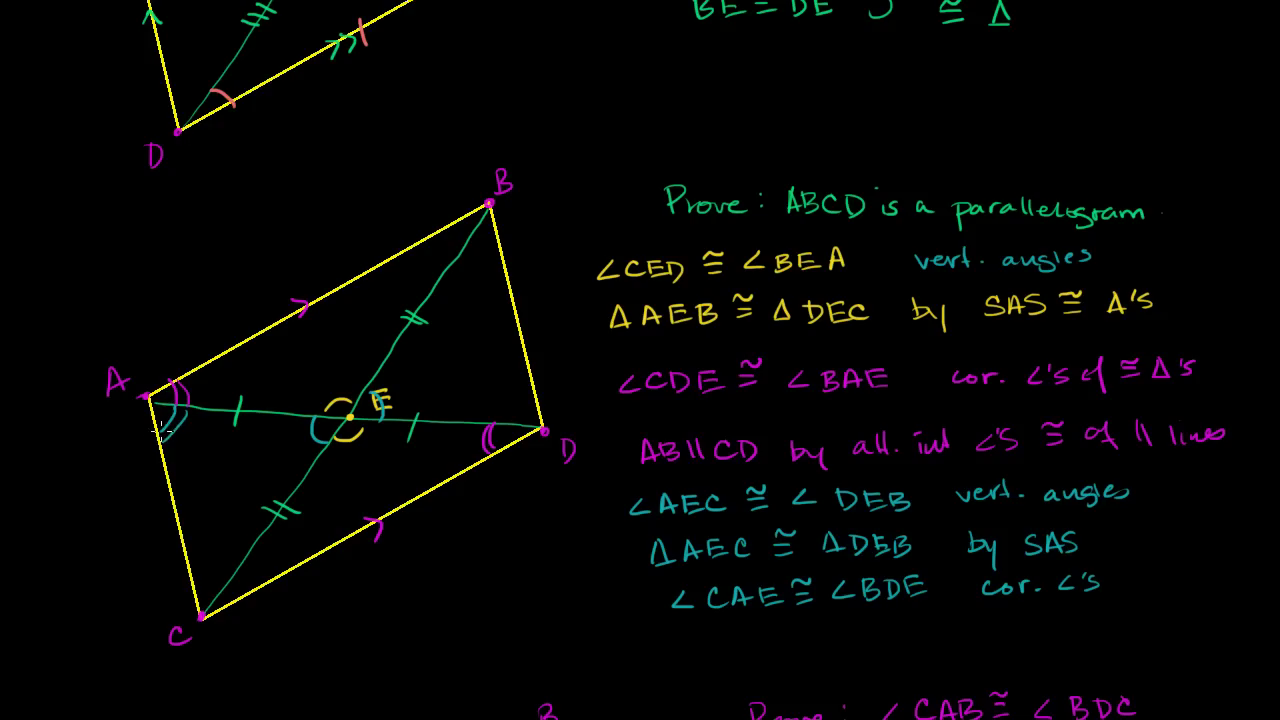 BE ≅ DE ≅ Δ
D
B
Prove: ABCD is a parallelogram
∠CED ≅ ∠BEA vert. angles
ΔAEB ≅ ΔDEC by SAS ≅ Δ's
A
E
∠CDE ≅ ∠BAE cor. ∠'s of ≅ Δ's
D
AB ∥ CD by alt. int ∠'s ≅ of ∥ lines
∠AEC ≅ ∠DEB vert. angles
ΔAEC ≅ ΔDEB by SAS
∠CAE ≅ ∠BDE cor. ∠'s
C
B
Prove: ∠CAB ≅ ∠BDC